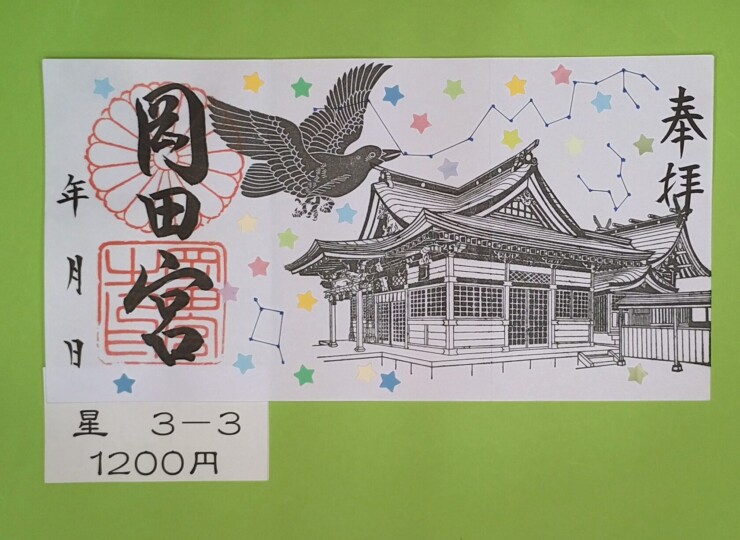 奉拝
岡田宮
年　月　日
星　３－３
１２００円